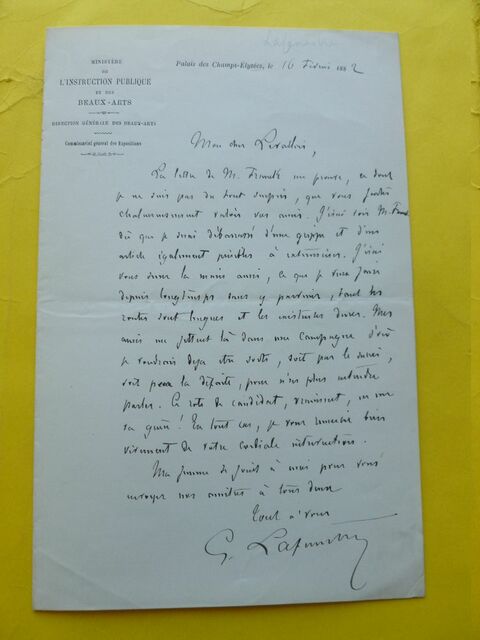 MINISTÈRE
DE
L'INSTRUCTION PUBLIQUE
ET DES
BEAUX-ARTS
DIRECTION GÉNÉRALE DES BEAUX-ARTS
Commissariat général des Expositions
Palais des Champs-Elysées, le 16 Février 1882
Mon cher Levallois,
La lettre de M. Franck me prouve, ce dont
je ne suis pas du tout surpris, que vous
chaleureusement vos amis. J'irai voir M. Franck
dès que je serai débarrassé d'une grippe et d'un
article également pénibles à J'irai
vous serrer la main aussi, ce que je veux faire
depuis longtemps sans y parvenir, tant les
routes sont longues et les dures. Mes
amis me jettent là dans une campagne d'où
je voudrais déjà être sorti, soit par le succès,
soit par la défaite, pour n'en plus entendre
parler. Ce rôle de candidat, vraiment,
En tout cas, je vous remercie bien
vivement de votre cordiale intervention.
Ma femme se joint à moi pour vous
envoyer nos amitiés à tous deux
Tout à vous
G. Lafenestre